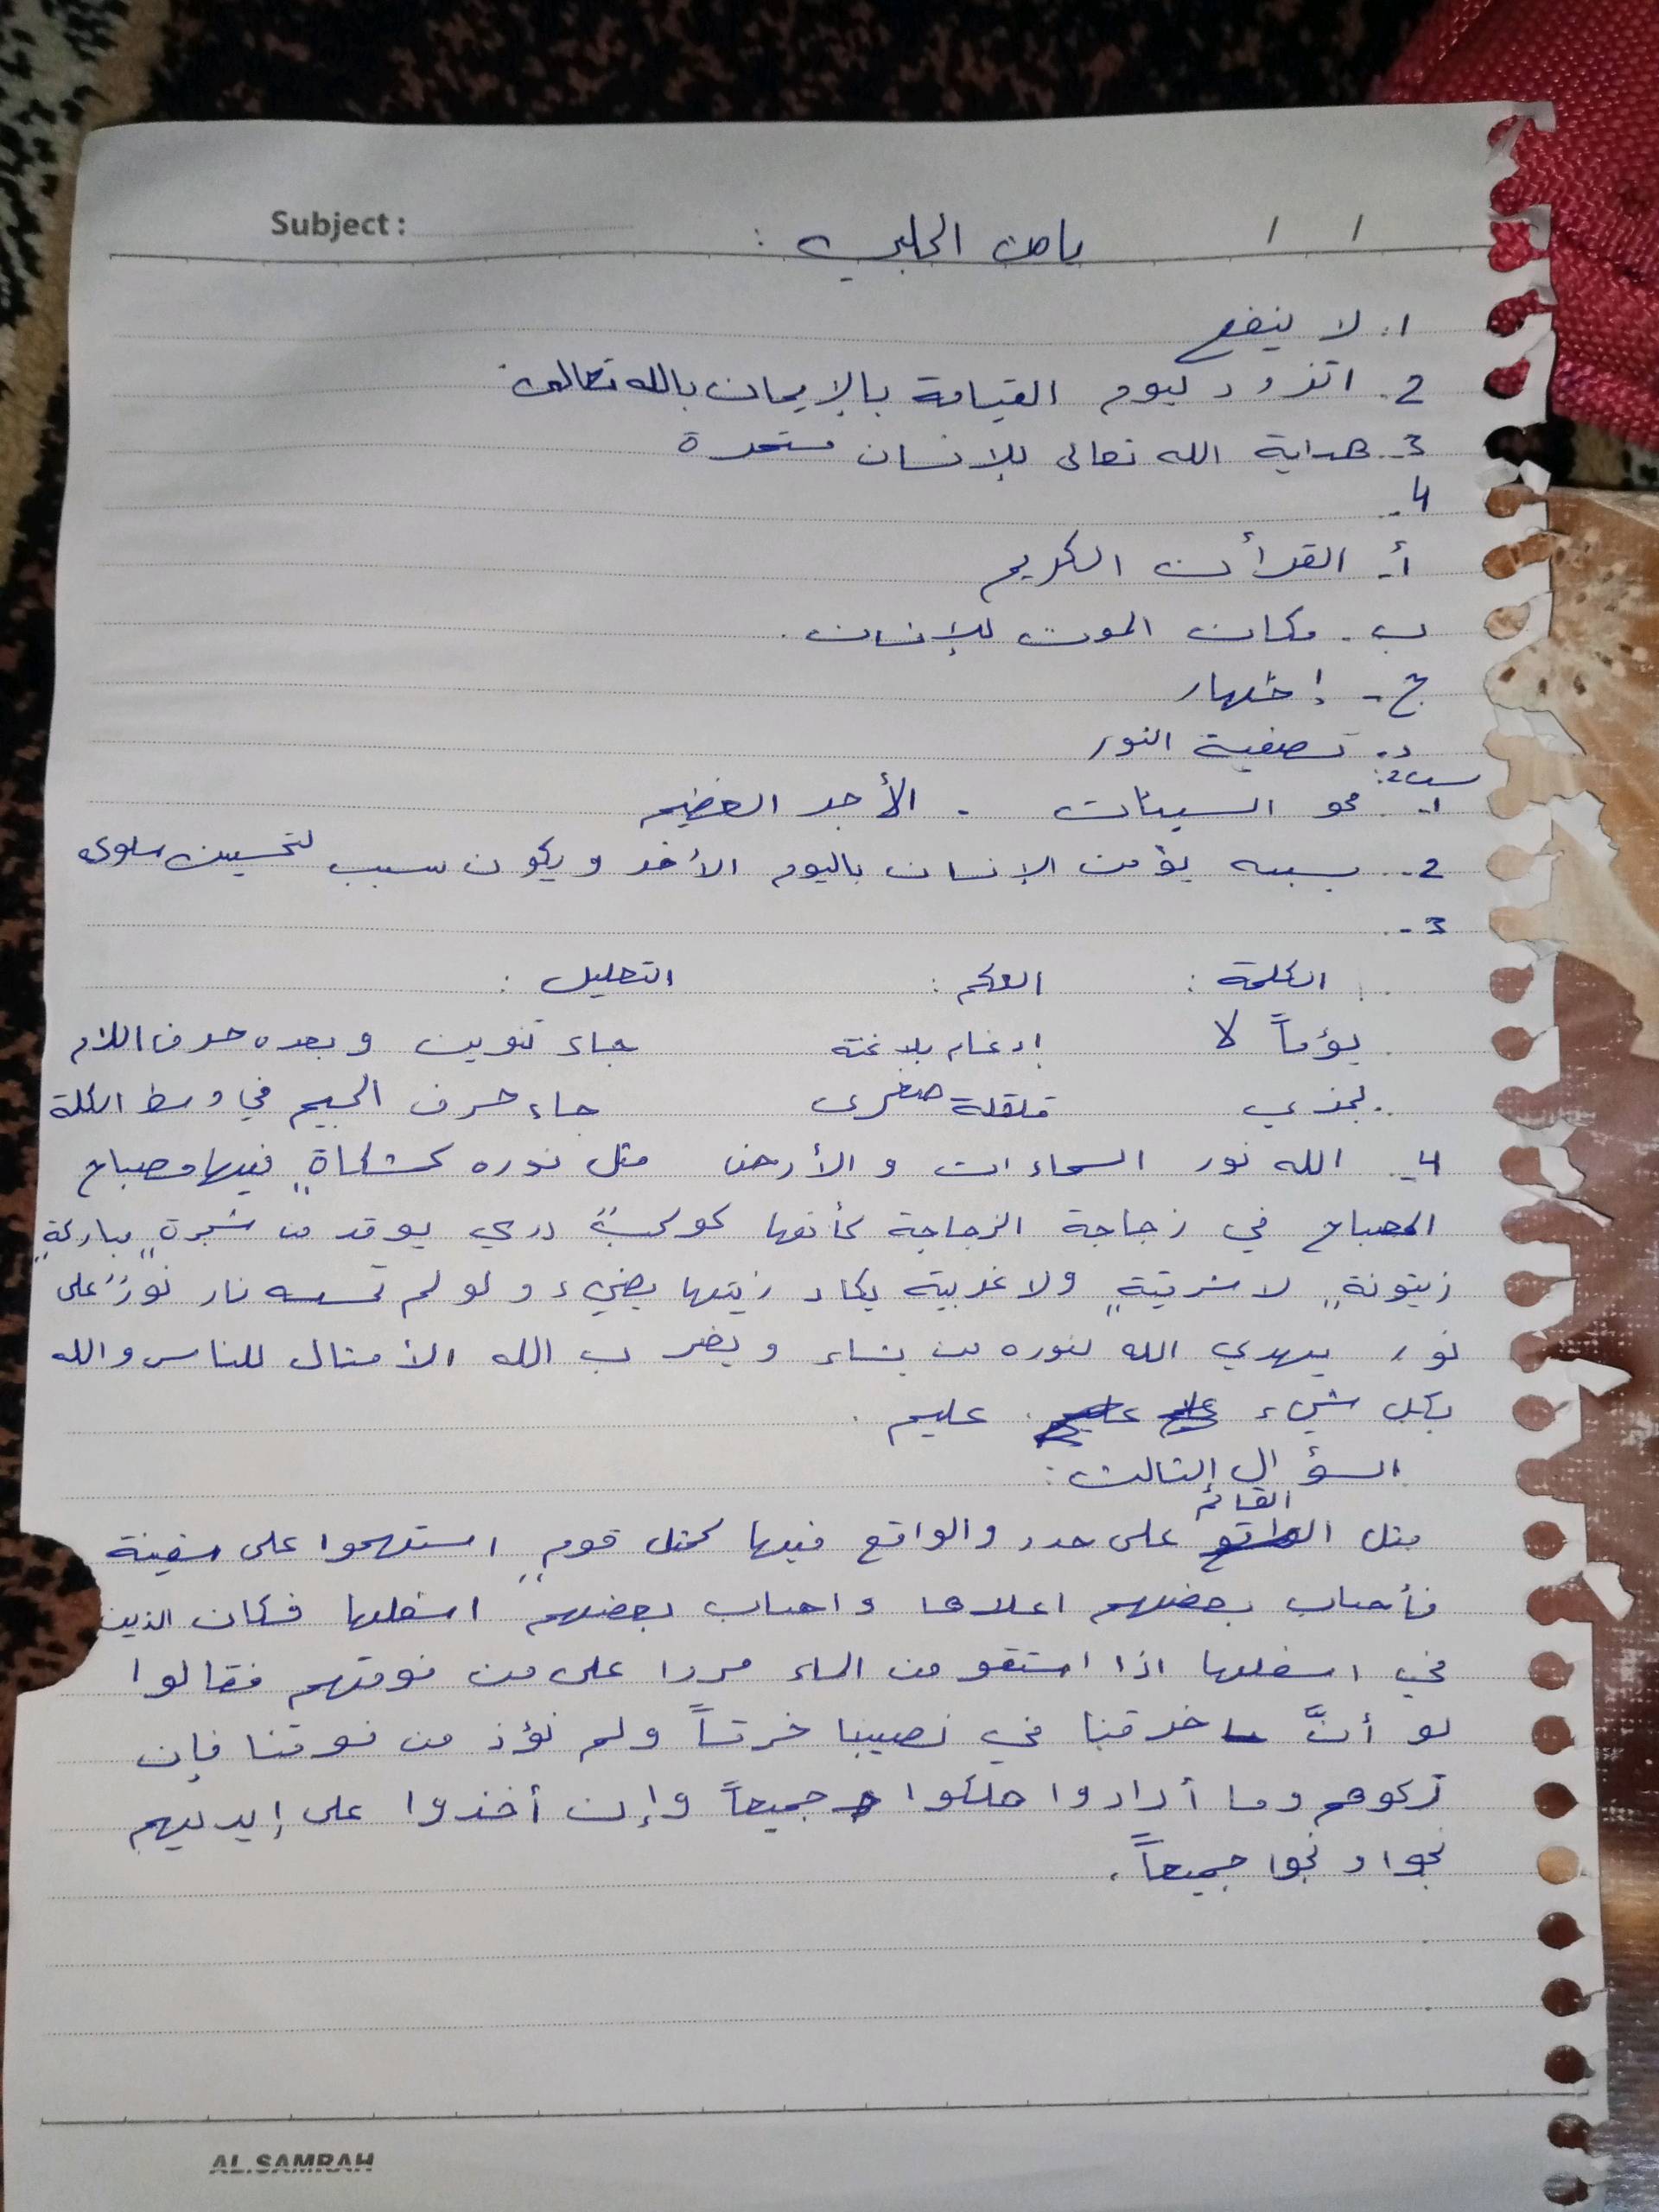 Subject :
يامن الحلبي :
/ /
1. لا ينفع
2. اتزود ليوم القيامة بالإيمان بالله تعالى
3. هداية الله تعالى للإنسان مستمرة
4.
أ. القرأن الكريم
ب. مكان الموت للإنسان.
ج. إظهار
د. تصفية النور
س2:
1. محو السيئات . الأجر العظيم
2. بسببه يؤمن الإنسان باليوم الأخر ويكون سبب لتحسين سلوك
3.
الكلمة : الحكم : التعليل :
يوماً لا إدغام بلا غنة جاء تنوين وبعده حرف اللام
يجزي قلقلة صغرى جاء حرف الجيم في وسط الكلمة
4. الله نور السماءات والأرض مثل نوره كمشكاةٍ فيها مصباح
المصباح في زجاجة الزجاجة كأنها كوكبٌ دري يوقد من شجرةٍ مباركةٍ
زيتونةٍ لا شرقيةٍ ولا غربية يكاد زيتها يضيء ولو لم تمسسه نار نورٌ على
نور يهدي الله لنوره من يشاء ويضرب الله الأمثال للناس والله
بكل شيء عليم .
السؤال الثالث :
مثل القائم على حدود والواقع فيها كمثل قومٍ استهموا على سفينة
فأصاب بعضهم اعلاها واصاب بعضهم اسفلها فكان الذين
في اسفلها اذا استقو من الماء مروا على من فوقهم فقالوا
لو أنَّا خرقنا في نصيبنا خرقاً ولم نؤذ من فوقنا فإن
تركوهم وما أرادوا هلكوا جميعاً وإن أخذوا على إيديهم
نجوا ونجوا جميعاً.
AL.SAMRAH